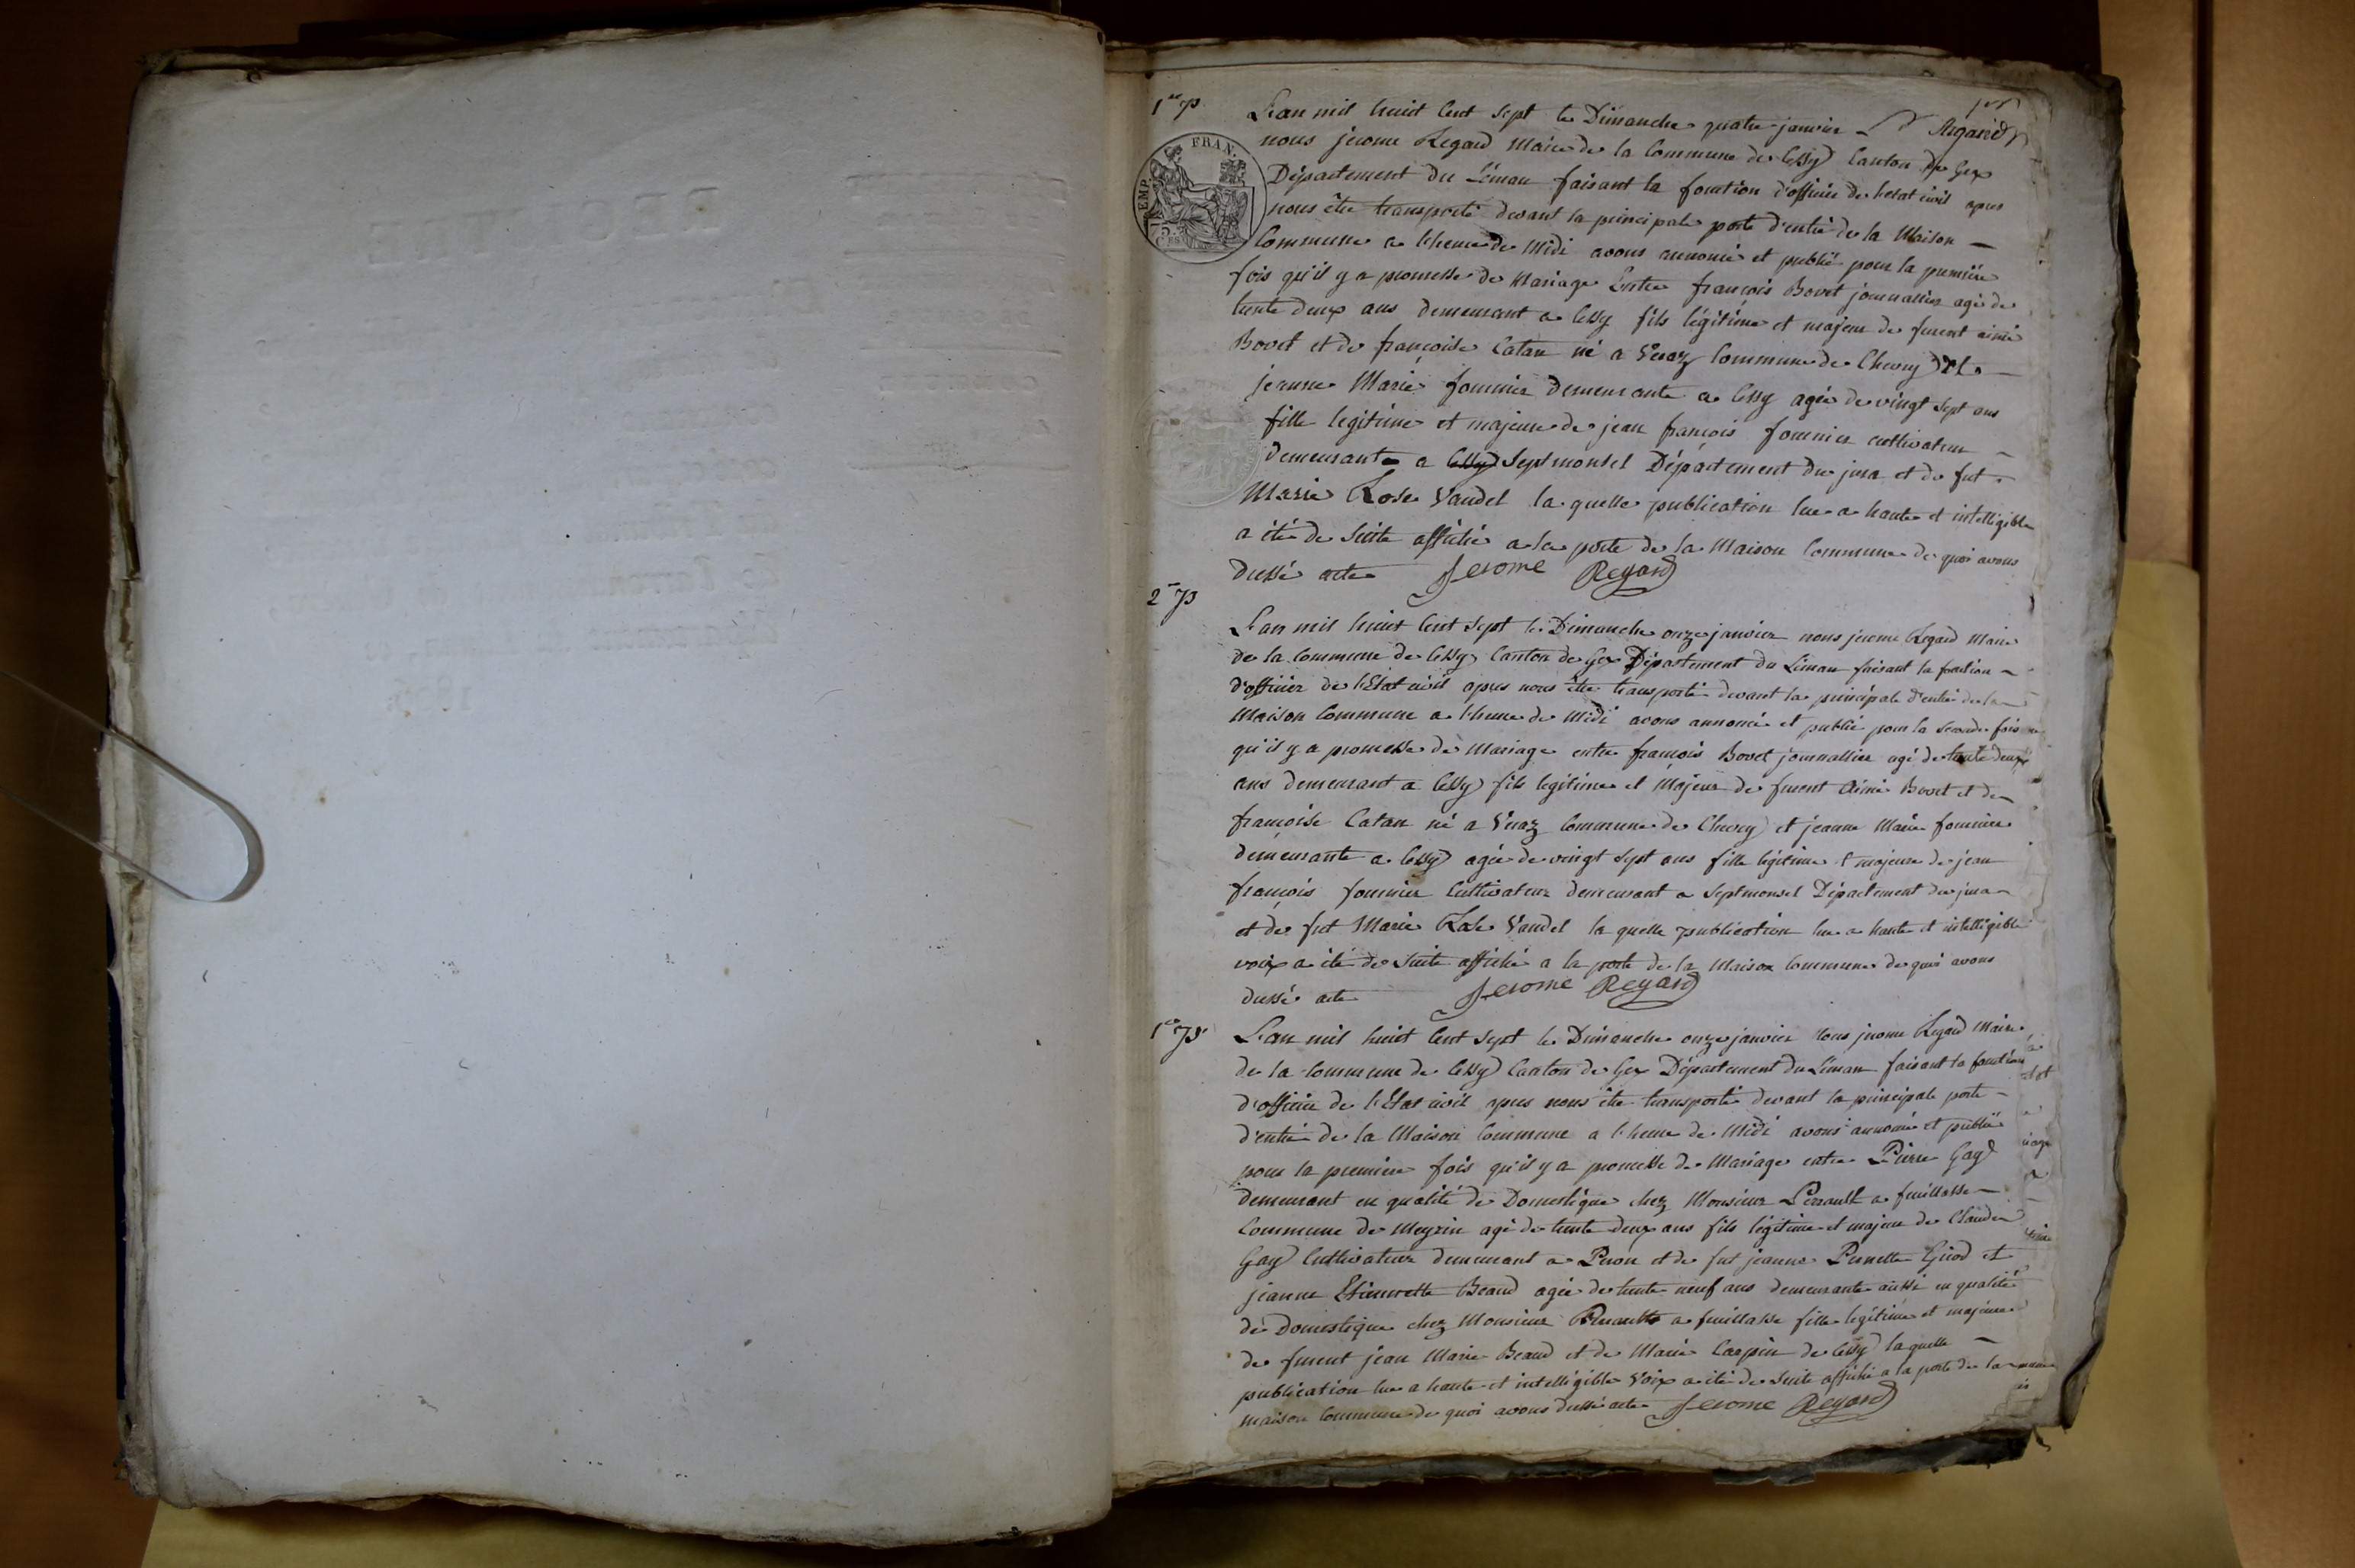 1re p
L'an mil huit Cent Sept le Dimanche quatre janvier
nous jerome Regard Maire de la Commune de Cessy Canton de Gex
Département du Léman faisant la fonction d'officier de l'etat civil apres
nous être transporté devant la principale porte d'entré de la Maison
Commune a l'heure de Midi avons annoncé et publié pour la première
fois qu'il y a promesse de Mariage Entre françois Bovet journallier agé de
trente deux ans demeurant a Cessy fils légitime et majeur de furent aimé
Bovet et de françoise Catan né a Veraz Commune de Chevry Et
jeanne Marie fournier demeurante a Cessy agée de vingt Sept ans
fille legitime et majeure de jean françois fournier cultivateur
demeurant a Cessy Septmonsel Département du jura et de fut
Marie Rose Vandel la quelle publication lue a haute et intelligible
a été de Suite affiché a la porte de la Maison Commune de quoi avons
dressé acte Jerome Regard
2me p
L'an mil huit Cent Sept le Dimanche onze janvier nous jerome Regard Maire
de la Commune de Cessy Canton de Gex Département du Léman faisant la fonction
d'officier de l'Etat civil apres nous être transporté devant la principale d'entré de la
Maison Commune a l'heure de Midi avons annoncé et publié pour la seconde fois
qu'il y a promesse de Mariage entre françois Bovet journallier agé de trente deux
ans demeurant a Cessy fils legitime et Majeur de furent Aimé Bovet et de
françoise Catan né a Veraz Commune de Chevry et jeanne Marie fournier
demeurante a Cessy agée de vingt Sept ans fille légitime et majeure de jean
françois fournier Cultivateur demeurant a Septmonsel Département du jura
et de fut Marie Rose Vandel la quelle publication lue a haute et intelligible
voix a été de Suite affiché a la porte de la Maison Commune de quoi avons
dressé acte Jerome Regard
1re p
L'an mil huit Cent Sept le Dimanche onze janvier Nous jerome Regard Maire
de la Commune de Cessy Canton de Gex Département du Léman faisant la fonction
d'officier de l'Etat civil apres nous être transporté devant la principale porte
d'entré de la Maison Commune a l'heure de Midi avons annoncé et publié
pour la première fois qu'il y a promesse de Mariage entre Pierre Gay
demeurant en qualité de Domestique chez Monsieur Perrault a feuillasse
Commune de Meyrin agé de trente deux ans fils légitime et majeur de Claude
Gay Cultivateur demeurant a Peron et de fut jeanne Pernette Girod et
jeanne Etiennette Beaud agée de trente neuf ans demeurante aussi en qualité
de Domestique chez Monsieur Perrault a feuillasse fille légitime et majeure
de furent jean Marie Beaud et de Marie Carpin de Cessy laquelle
publication lue a haute et intelligible Voix a été de Suite affiché a la porte de la
maison Commune de quoi avons dressé acte Jerome Regard